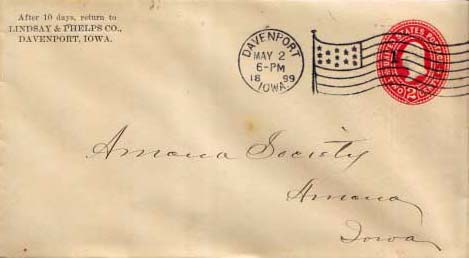 After 10 days, return to
LINDSAY & PHELPS CO.,
DAVENPORT, IOWA.
DAVENPORT
MAY 2
6-PM
18 99
IOWA.
UNITED STATES POSTAGE
TWO 2 CENTS
Amana Society
Amana
Iowa